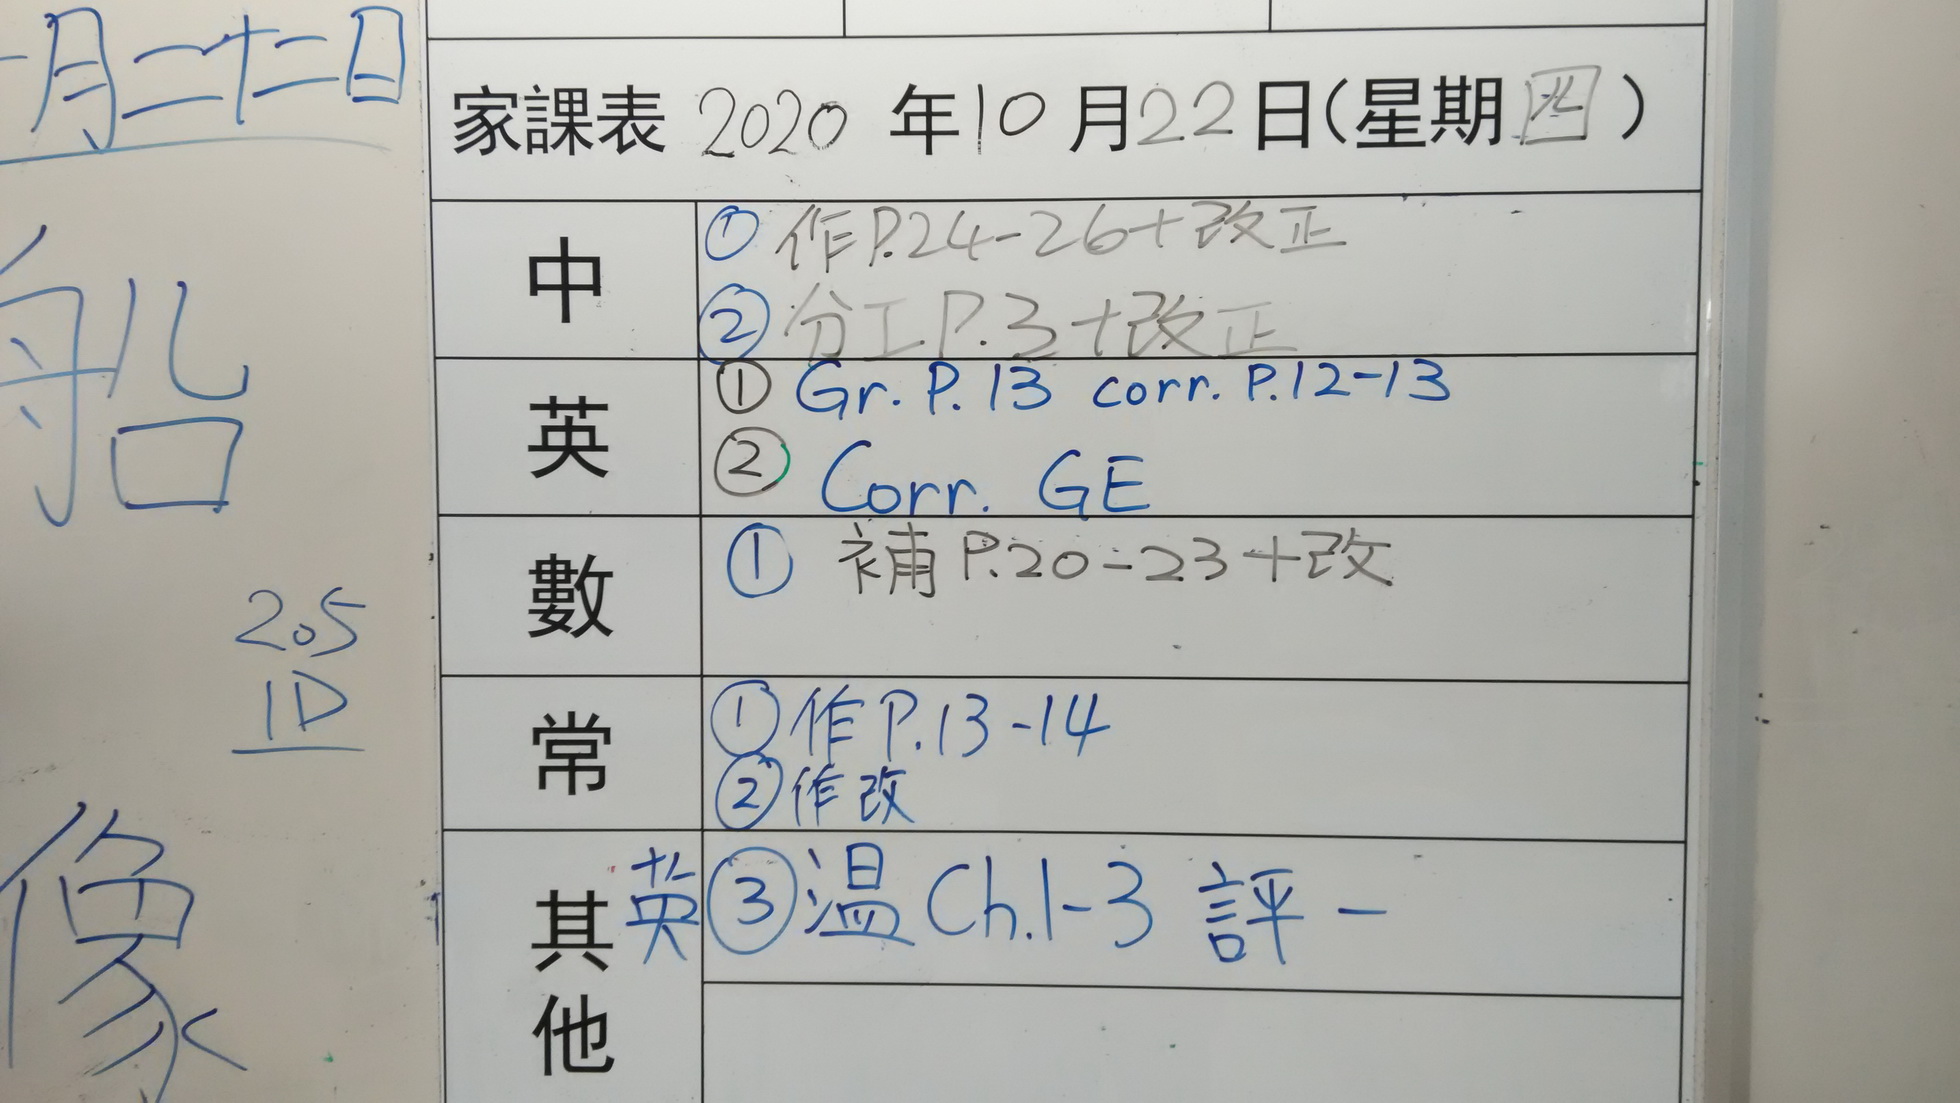 月二十二日
船
205
1D
像
家課表 2020 年 10 月 22 日(星期四)
中
① 作P.24-26+改正
② 分工P.3+改正
英
① Gr. P. 13 corr. P.12-13
② Corr. GE
數
① 補P.20-23+改
常
① 作P.13-14
② 作改
其他
英 ③ 溫 Ch.1-3 評一